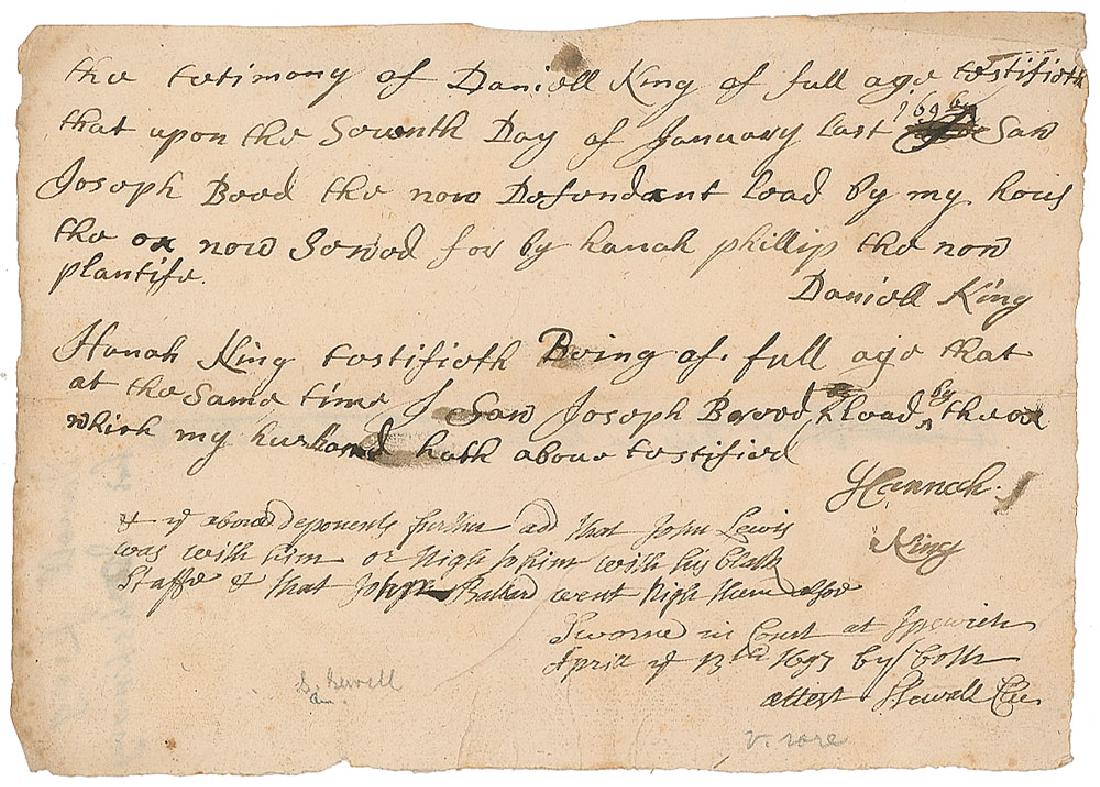 the testimony of Daniell King of full age testifieth
that upon the Seventh Day of January last 1696 Saw
Joseph Bood the now Defendant lead by my hous
the ox now Sewed for by hanah phillip the now
plantife.
Daniell King
Hanah King testifieth Being of full age that
at the Same time I Saw Joseph Bood lead by the ox
which my husband hath above testified
Hannah
King
& ye above Deponents further ad that John Lewis
was with him or nigh to him with his black
Staffe & that John Ballerd went nigh them also
Sworne in Court at Ipswich
April ye 13th 1697 by both
attest SSewall Cler
S. Sewell
V. rare